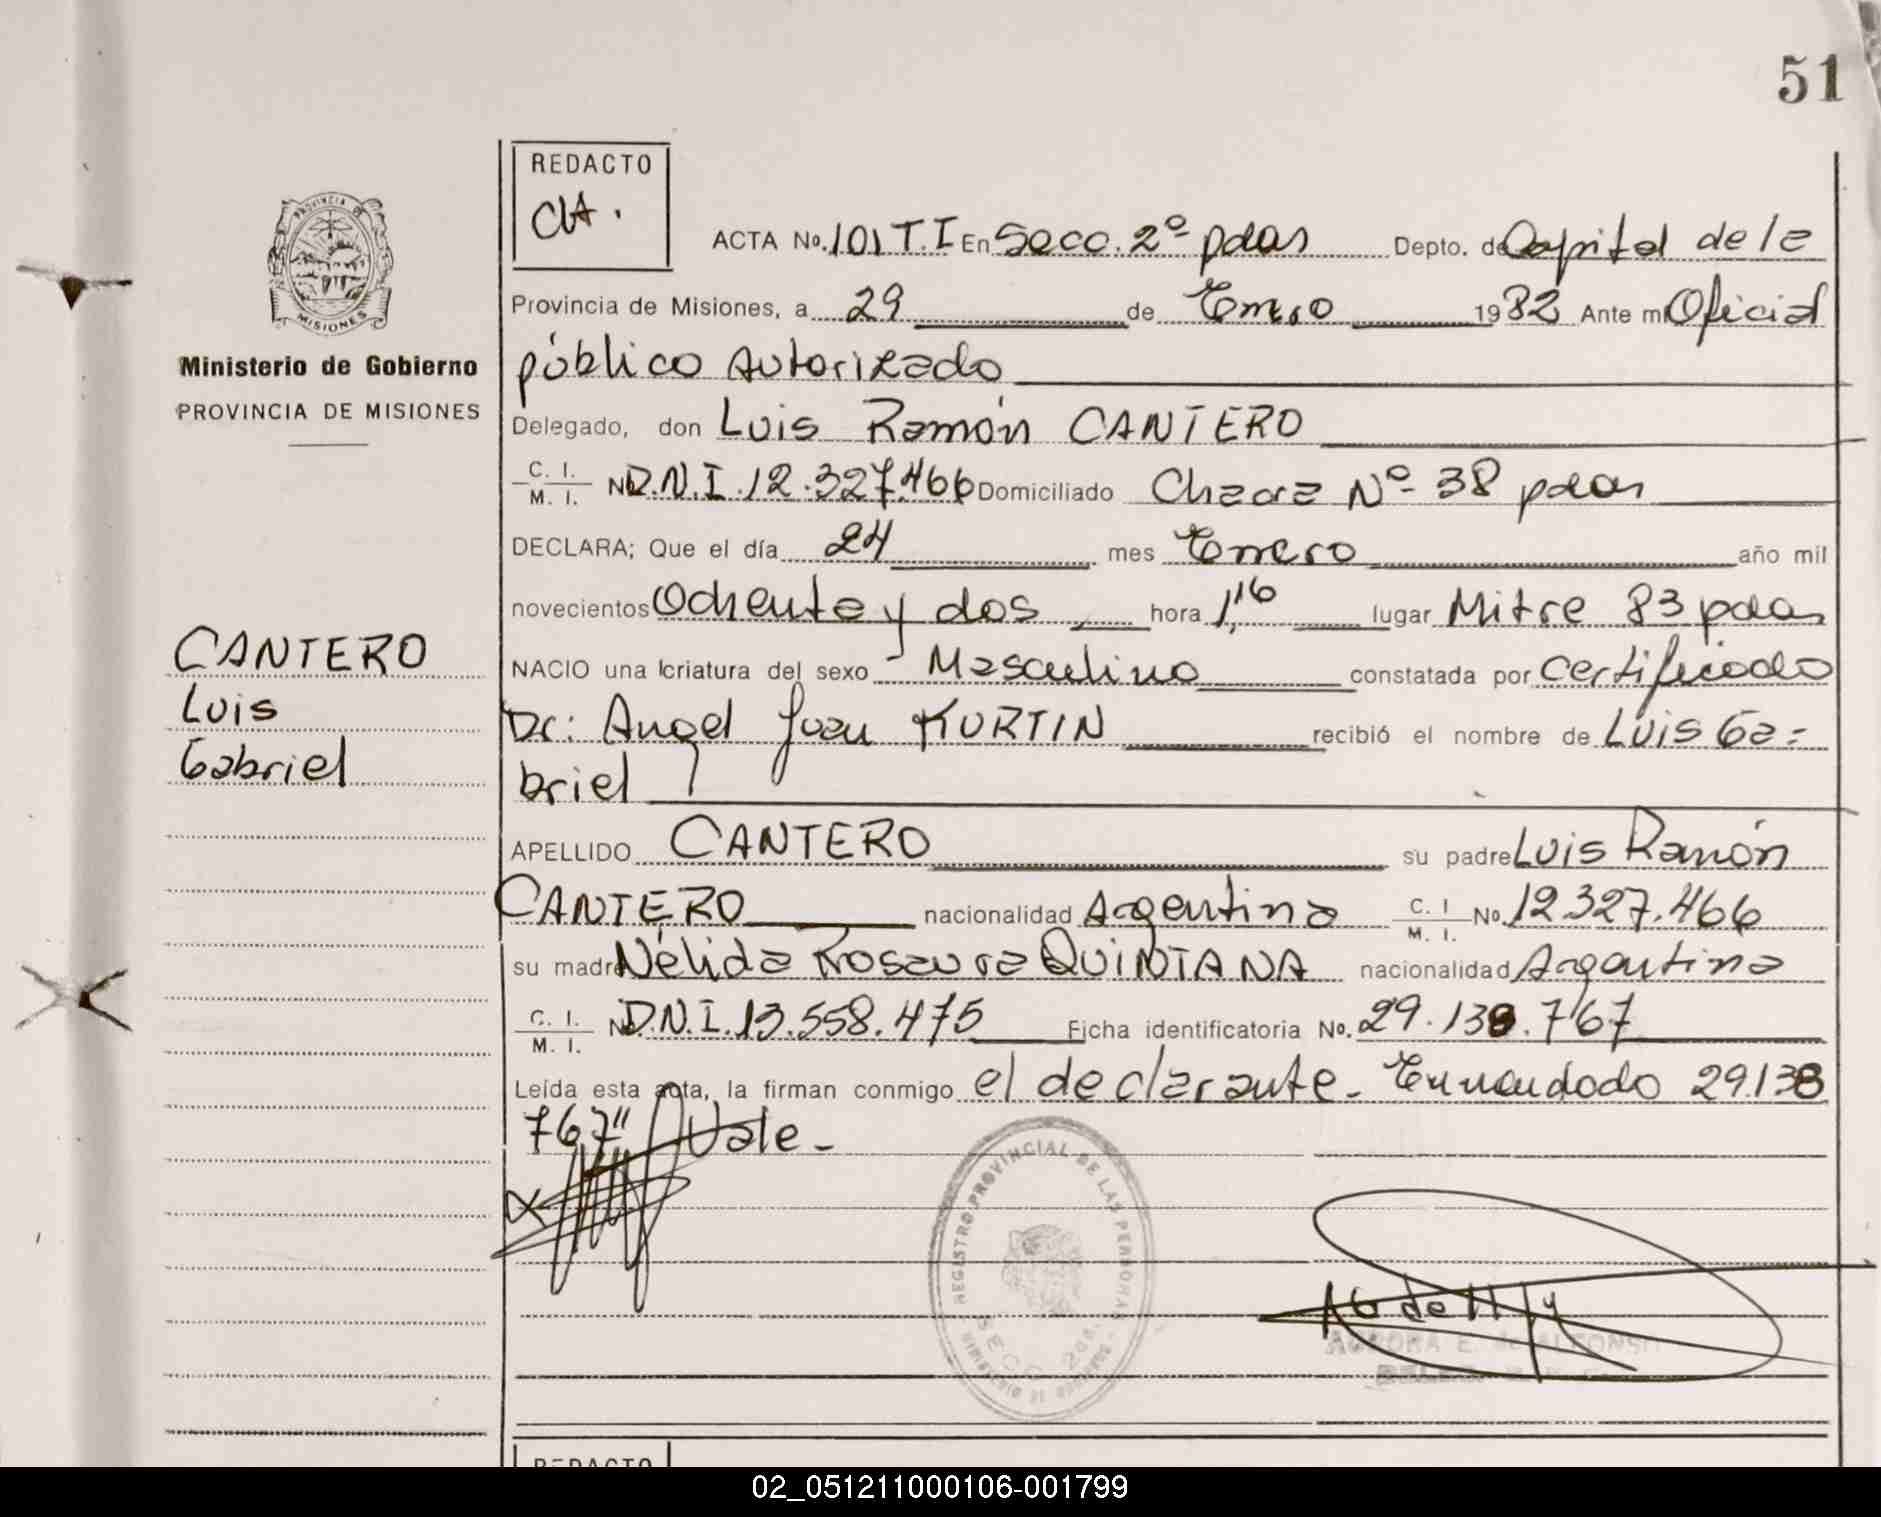 51
REDACTO
CIA.
PROVINCIA DE
MISIONES
ACTA No. 101 T.I En Secc. 2º pdas Depto. de Capital de la
Provincia de Misiones, a 29 de Enero 1982 Ante mi Oficial
Ministerio de Gobierno
público Autorizado
PROVINCIA DE MISIONES
Delegado, don Luis Ramón CANTERO
C. I. M. I. No D.N.I. 12.327.466 Domiciliado Chacra Nº 38 pdas
DECLARA; Que el día 24 mes Enero año mil
novecientos Ochenta y dos hora 1,16 lugar Mitre 83 pdas
CANTERO
NACIO una criatura del sexo Masculino constatada por certificado
Luis
Dr: Angel Juan KURTIN recibió el nombre de Luis Ga=
Gabriel
briel
APELLIDO CANTERO su padre Luis Ramón
CANTERO nacionalidad Argentina C. I M. I. No. 12.327.466
su madre Nélida Rosaura QUINTANA nacionalidad Argentina
C. I. M. I. No D.N.I. 13.558.475 Ficha identificatoria No. 29.138.767
Leída esta acta, la firman conmigo el declarante. Enmendado 29.138
767" Vale -
REGISTRO PROVINCIAL DE LAS PERSONAS
SECC 2da.
AURORA E. de ALFONSO
REDACTO
02_051211000106-001799